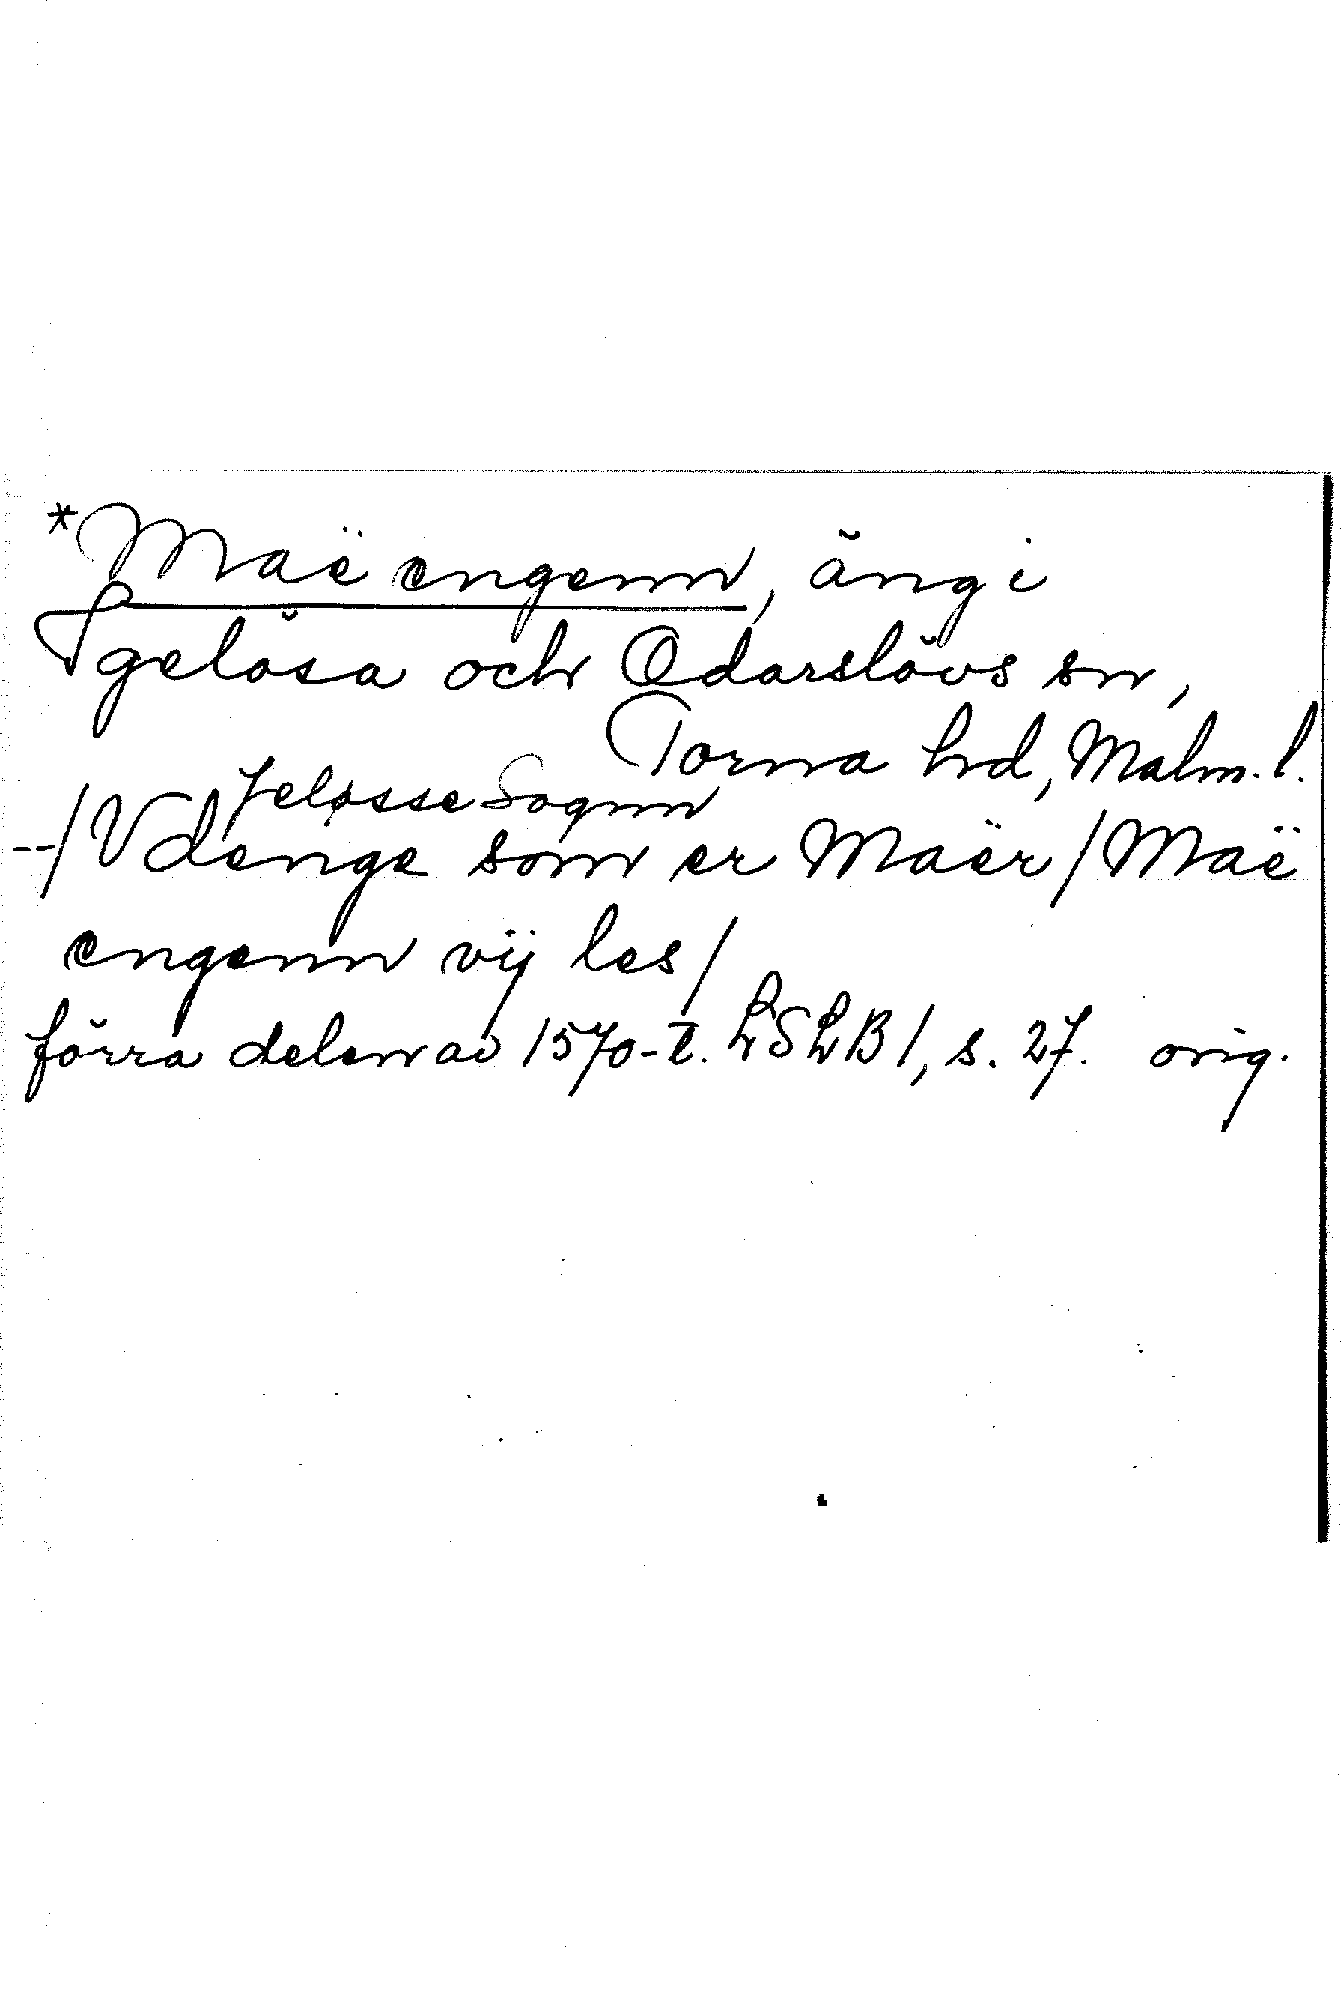 *Maë engenn, äng i
Igelösa och Odarslövs sn,
Torna hd, Malm. l.
Jeløsse Sognn
--/Vdenge som er Maër/Maë
engenn vij les/
förra delen av 1570-t. LSLB 1, s. 27. orig.